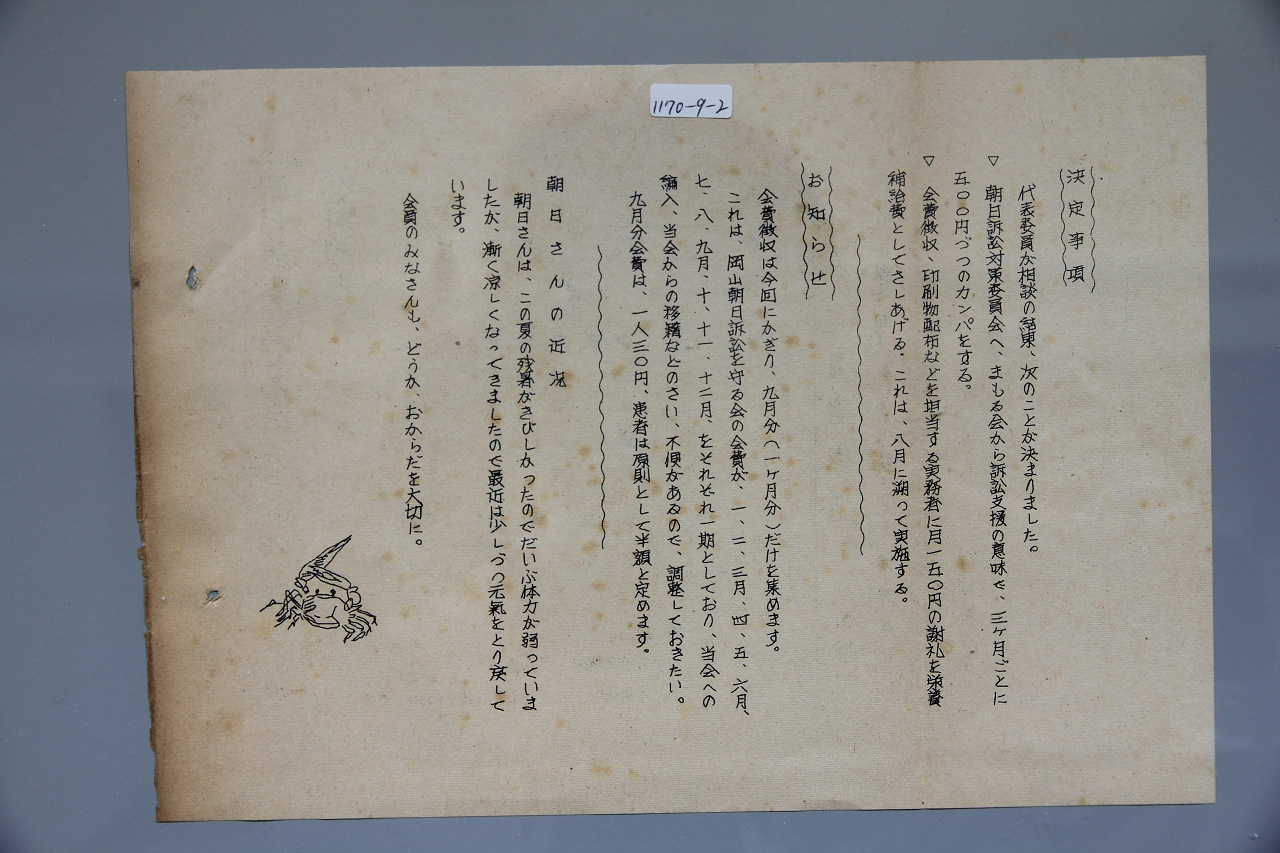 1170-9-2
決定事項
代表委員が相談の結果、次のことが決まりました。
▽ 朝日訴訟対策委員会へ、まもる会から訴訟支援の意味で、三ヶ月ごとに
五〇〇円づつのカンパをする。
▽ 会費徴収、印刷物配布などを担当する実務者に月一五〇円の謝礼を栄養
補給費としてさしあげる。これは、八月に溯って実施する。
お知らせ
会費徴収は今回にかぎり、九月分(一ヶ月分)だけを集めます。
これは、岡山朝日訴訟を守る会の会費が、一、二、三月、四、五、六月、
七、八、九月、十、十一、十二月、をそれぞれ一期としており、当会への
編入、当会からの移籍などのさい、不便があるので、調整しておきたい。
九月分会費は、一人三〇円、患者は原則として半額と定めます。
朝日さんの近況
朝日さんは、この夏の残暑がきびしかったのでだいぶ体力が弱っていま
したが、漸く涼しくなってきましたので最近は少しづつ元氣をとり戻して
います。
会員のみなさんも、どうか、おからだを大切に。